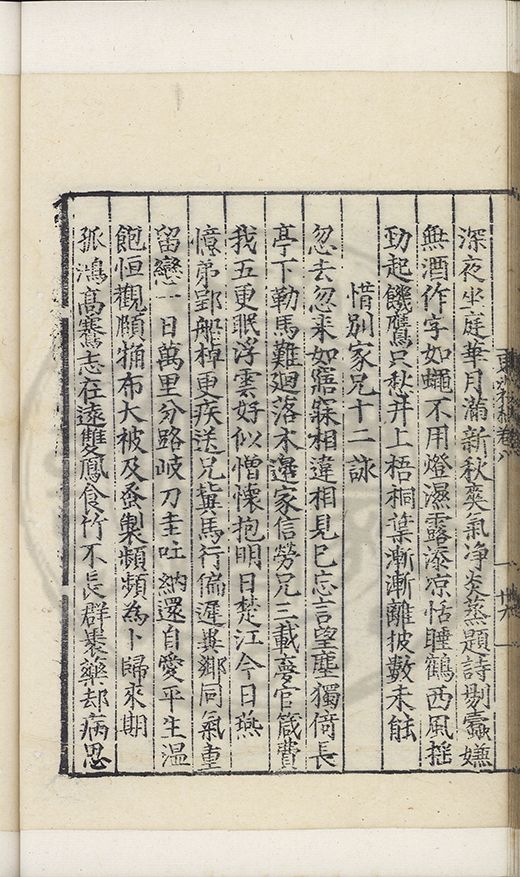 深夜坐庭華月滿新秋爽氣净炎蒸題詩剔蠹嫌
無酒作字如蠅不用燈濕露添凉恬睡鶴西風揺
勁起饑鷹只秋井上梧桐葉漸漸離披數未能
惜别家兄十二詠
忽去忽来如寤寐相違相見已忘言望塵獨倚長
亭下勒馬難廻落木邉家信勞兄三載夣官箴費
我五更眠浮雲好似憎懷抱明日楚江今日燕
憶弟郢船棹更疾送兄冀馬行偏遲異鄉同氣重
留戀一日萬里分路岐刀圭吐納還自愛平生温
飽恒觀頥布大被及蚤製頻頻為卜歸來期
孤鴻高騫志在遠雙鳳食竹不長群褁藥却病思